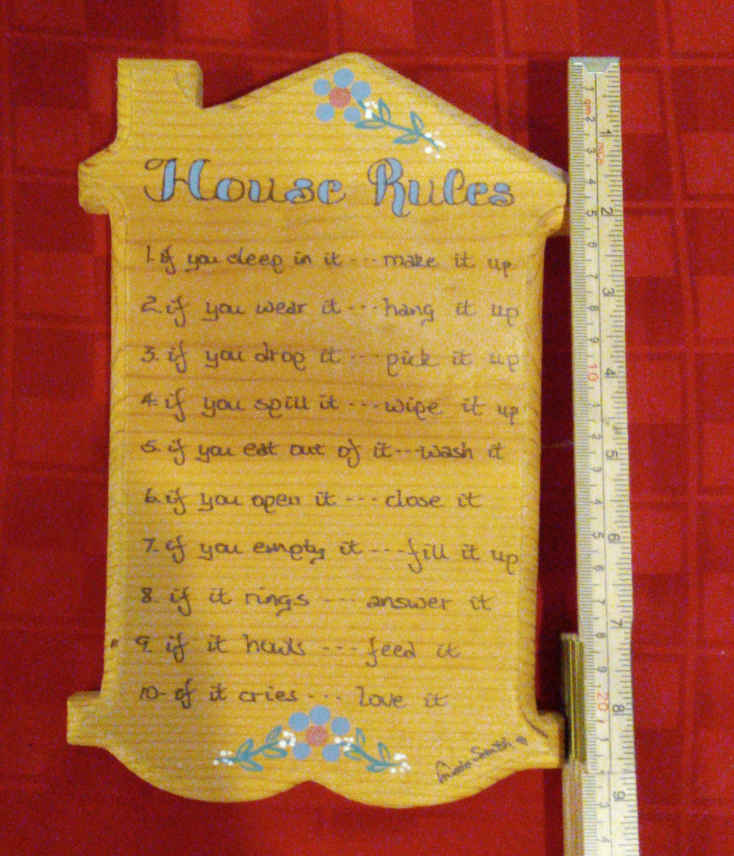 House Rules
1. if you sleep in it --- make it up
2. if you wear it --- hang it up
3. if you drop it --- pick it up
4. if you spill it --- wipe it up
5. if you eat out of it --- wash it
6. if you open it --- close it
7. if you empty it --- fill it up
8. if it rings --- answer it
9. if it howls --- feed it
10. if it cries --- love it
Smith
1
2
3
4
5
6
7
8
9
10
20